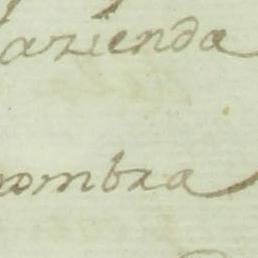 azienda
nombra